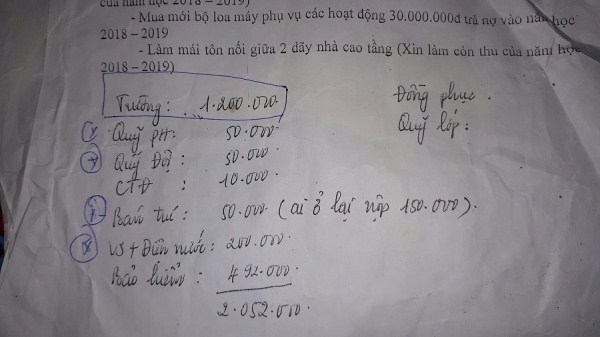 của năm học 2018 – 2019)
- Mua mới bộ loa máy phụ vụ các hoạt động 30.000.000đ trả nợ vào năm học
2018 – 2019
- Làm mái tôn nối giữa 2 dãy nhà cao tầng (Xin làm còn thu của năm học
2018 – 2019)
Trường: 1.200.000.
Quỹ PH: 50.000.
Quỹ Đội: 50.000.
CTĐ : 10.000.
Bán trú: 50.000. (ai ở lại nộp 150.000).
VS + Điện nước: 200.000.
Bảo hiểm: 492.000.
2.052.000.
Đồng phục.
Quỹ lớp: